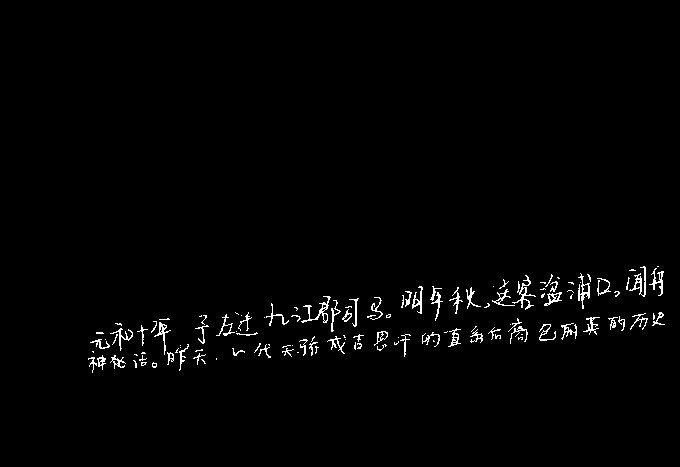 元和十年 予左迁九江郡司马。明年秋,送客湓浦口。闻舟
神秘活。昨天,一代天骄成吉思汗的直系后裔包丽英的历史